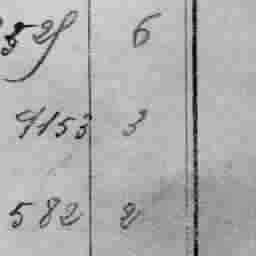 6
4153 3
582 2